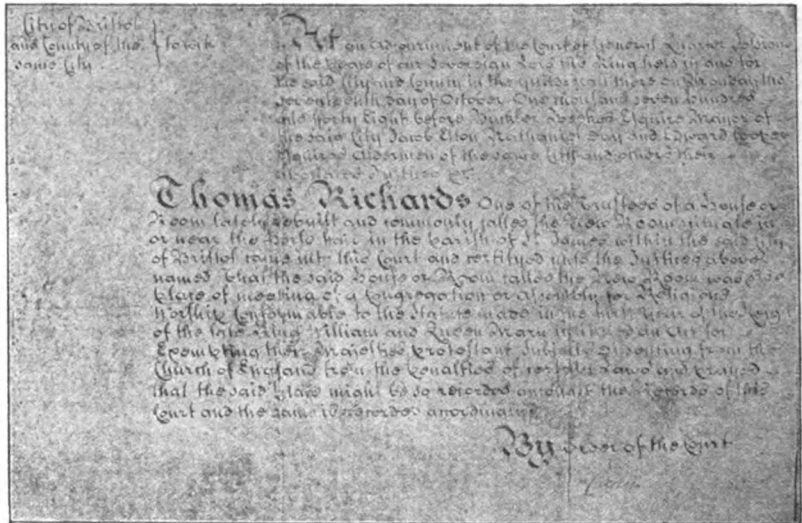 City of Bristol
and County of the } to wit
same City
At an Adjournment of the Court of General Quarter Sessions
of the Peace of our Sovereign Lord the King held in and for
the said City and County in the Guildhall there on Monday the
seventeenth day of October One thousand seven hundred
and forty Eight before Esquire Mayor of
the said City Jacob Elton Nathaniel Day and Edward Cooper
Esquires Aldermen of the same City and others their
Thomas Richards One of the Trustees of a House or
Room lately rebuilt and commonly called the New Room situate in
or near the Horse fair in the Parish of St. James within the said City
of Bristol came into this Court and certifyed unto the Justices above
named that the said House or Room called the New Room was
place of meeting of a Congregation or Assembly for Religious
Worship Conformable to the Statute made in the first Year of the Reign
of the late King William and Queen Mary intitled an Act for
Exempting their Majesties protestant Subjects Dissenting from the
Church of England from the Penalties of certain Laws and prayed
that the said place might be so recorded amongst the Records of this
Court and the same is recorded accordingly
By order of the Court